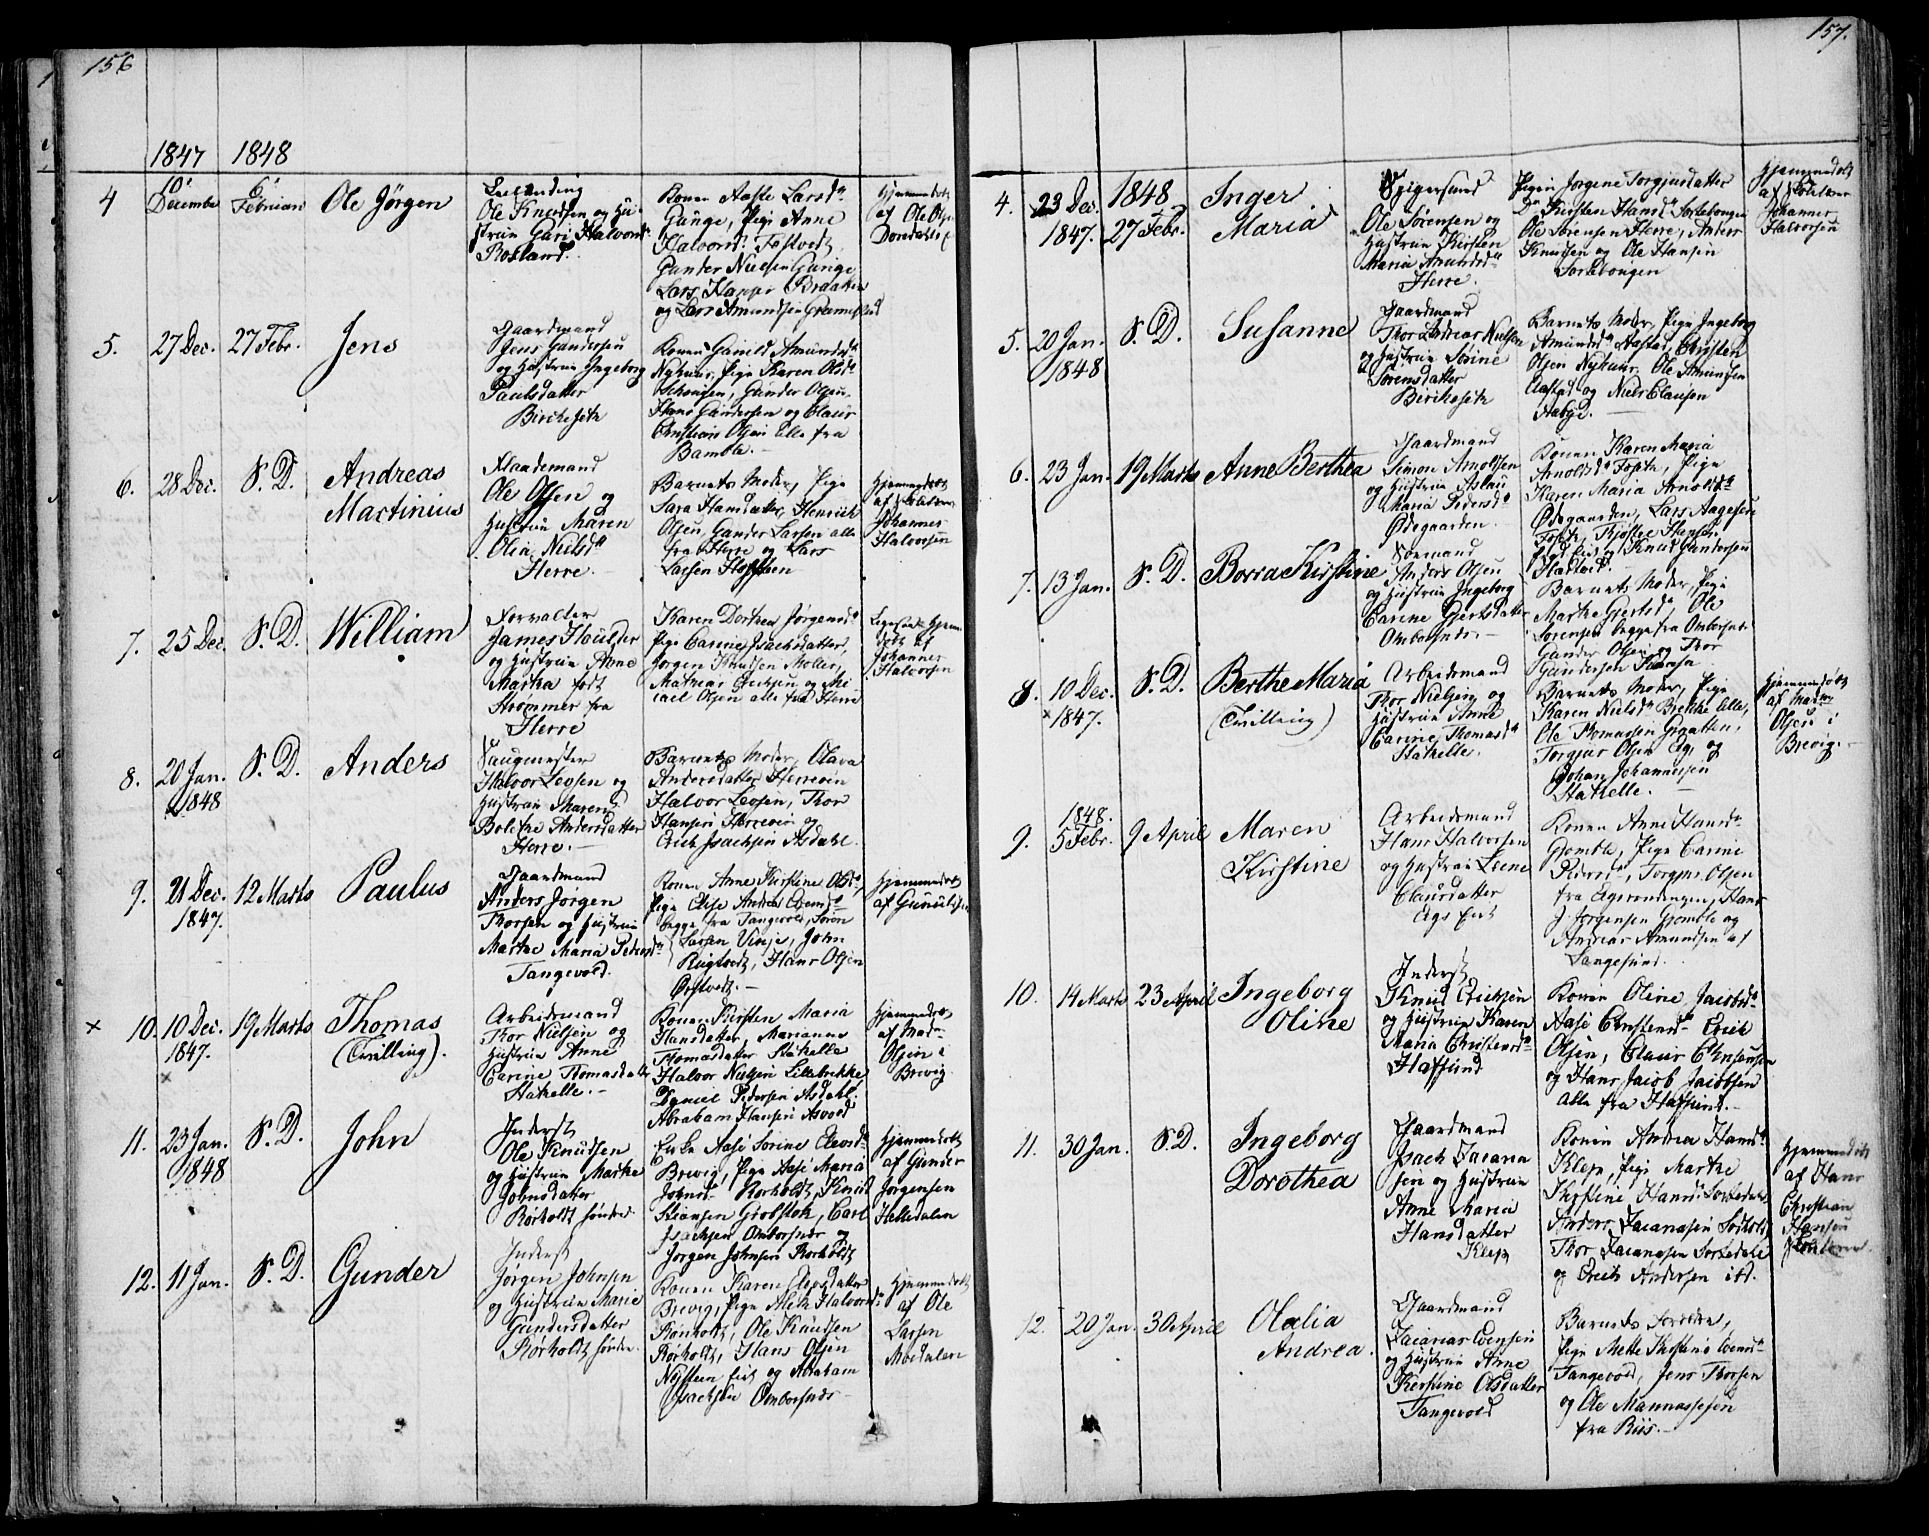 156
1847 1848
4
10de
Decembr
6te
Februari
Ole Jørgen
Ole Knudsen og Hu-
struе Guri Halvorsd.
Rosland.
Konen Aaste Larsd.
Gunge, Pige Anne
Halvorsd. Tostvedt,
Gunder Nielsen Gunge,
Lars Hansen Braaten
og Lars Amundsen
Hjemmedøbt
af Ole Olsen
5. 27 Dec. 27 Febr. Jens
Gaardmand
Jens Gundersen
og Hustrue Ingeborg
Paulsdatter
Birkeseth
Konen Gunild Amundsd.
Nyhuus, Pige Karen Olsd.
Gunder Olsen,
Hans Gundersen og Claus
Christian Olsen alle fra
Bamble.
6. 28 Dec. S. D. Andreas
Martinius
Ole Olsen og
Hustrue Maren
Olea Nielsd.
Herre.
Barnets Moder, Pige
Sara Hansdatter, Henrich
Olsen, Gunder Larsen alle
fra Herre og Lars
Larsen
Hjemmedøbt
af Skolelærer
Johannes
Halvorsen
7. 25 Dec. S. D. William
Forvalter
James Houlder
og Hustrue Anne
Martha født
Strømmer fra
Herre
Karen Dorthea Jørgensd.
Pige Carine Isachsdatter,
Jørgen Knudsen Møller,
Mathias Erichsen og Mi
cael Olsen alle fra Herre
Hjem-
døbt af
Johannes
Halvorsen
8. 20 Jan. S. D. Anders
1848
Saugmester
Halvor Leosen og
Hustrue Maren
Bolethe Andersdatter
Herre.
Barnets Moder, Olava
Andersdatter Herrevin
Halvor Leosen, Thor
Hansen Herrevin og
Erich Isachsen Asdahl.
9. 21 Dec. 12 Marts Paulus
1847.
Gaardmand
Anders Jørgen
Thorsen og Hustrue
Marthe Maria Pedersd.
Tangevold.
Konen Anne Kirstine Olsd.,
Pige Else Andrea Evensd.
begge fra Tangevold, Søren
Larsen Vinje, John
Rugtvedt, Hans Olsen
Ørstvedt.
Hjemmedøbt
af
× 10. 10 Dec. 19 Marts Thomas
1847. (Tvilling).
×
Arbeidsmand
Thor Nielsen og
Hustrue Anne
Carine Thomasdatter
Stathelle.
Konen Kirsten Maria
Hansdatter, Marianne
Thomasdatter Stathelle
Halvor Nielsen Lillebrekke
Daniel Pedersen Asdahl.
Abraham Hansen Asvold
Hjemmedøbt
af Mad.
Olsen i
Brevig.
11. 23 Jan. S. D. John
1848
Inderst
Ole Knudsen
og Hustrue Marthe
Johnsdatter
Rørholdt søndre
Enke Aase Sorine Elevsd.
Brevig, Pige Aase Maria
Johnsd. Rørholdt, Knud
Stiansen Grobstok, Carl
Isachsen Ombørsnes og
Jørgen Johnsen Rørholdt
Hjemmedøbt
af Gunder
Jørgensen
Helledalen
12. 11 Jan. S. D. Gunder
Inderst
Jørgen Johnsen
og Hustrue Marie
Gundersdatter
Rørholdt søndre
Konen Karen Elevsdatter
Brevig, Pige Aleth Halvorsd.
Rørholdt, Ole Knudsen
Rørholdt, Hans Olsen
Nysteen eie og Abraham
Isachsen Ombørsnes
Hjemmedøbt
af Ole
Larsen
Moedalen
157.
4. 23 Dec. 1848 Inger
1847. 27 Febr. Maria
Ole Sørensen og
Hustrue Kirsten
Maria Amundsd.
Herre.
Pigen Jørgene Torgiusdatter
Do Kirsten Hansd. Sortebogen
Ole Sørensen Herre, Anders
Knudsen og Ole Hansen
Sortebogen
Hjemmedøbt
af Skolelærer
Johannes
Halvorsen
5. 20 Jan. S. D. Susanne
1848
Gaardmand
Thor Andreas Nielsen
og Hustrue Sørine
Sørensdatter
Birkeseth
Barnets Moder, Pige Ingeborg
Amundsd. Aastad, Christen
Olsen Nyhuus, Ole Amundsen
Aastad og Niels Clausen
Aabye.
6. 23 Jan. 19 Marts Anne Berthea
Gaardmand
Simon Arnoltsen
og Hustrue Aslau
Maria Pedersd.
Ødegaarden.
Konen Karen Maria
Arnoldsd. Fosse, Pige
Karen Maria Arnoldsd.
Ødegaarden, Lars Aagesen
og Knud Gundersen
7. 13 Jan. S. D. Borra Kirstine
Sømand
Anders Olsen
og Hustrue Ingeborg
Carine Gjertsdatter
Ombørsnes.
Barnets Moder, Pige
Marthe Gjertsd., Ole
Sørensen begge fra Ombørsnes.
Gunder Olsen og Thor
Gundersen
8. 10 Dec. S. D. Berthe Maria
× 1847. (Tvilling)
Arbeidsmand
Thor Nielsen og
Hustrue Anne
Carine Thomasd.
Stathelle.
Barnets Moder, Pige
Karen Nielsd. Brekke lille,
Ole Thomasen Graatten,
Torgius Olsen Eeg og
Johan Johannessen
Stathelle.
Hjemmedøbt
af Mad.
Olsen i
Brevig.
1848.
9. 5 Febr. 9 April Maren
Kirstine
Arbeidsmand
Hans Halvorsen
og Hustrue Leene
Clausdatter
Eegs eie
Konen Anne Hansd.
Gromle, Pige Carine
Pedersd., Torgius Olsen
fra Eegsrendingen, Hans
J. Jørgensen Gromle og
Andreas Amundsen af
Langesund.
10. 14 Marts 23 April Ingeborg
Oline
Inderst
Knud Erichsen
og Hustrue Karen
Maria Christensd.
Hafsund
Konen Oline Jacobsd.
Aase Christensd. Erich
Olsen, Claus Christensen
og Hans Jacob Jacobsen
alle fra Hafsund.
11. 30 Jan. S. D. Ingeborg
Dorothea
Gaardmand
Isach Zacaria
sen og Hustrue
Anne Maria
Hansdatter
Klep
Konen Andrea Hansd.
Klep, Pige Marthe
Kirstine Hansd. Sortedahl
Anders Zacariasen
Thor Zacariasen Sortedahl
og Erich Andersen ibd.
Hjemmedøbt
af Hans
Christian
Hansen
Skolelærer.
12. 20 Jan. 30 April Olalia
Andrea.
Gaardmand
Zacarias Evensen
og Hustrue Anne
Kirstine Olsdatter
Tangevold
Barnets Forældre,
Pige Mette Kirstine Evensd.
Tangevold, Jens Thorsen
og Ole Mannassesen
fra Riis.